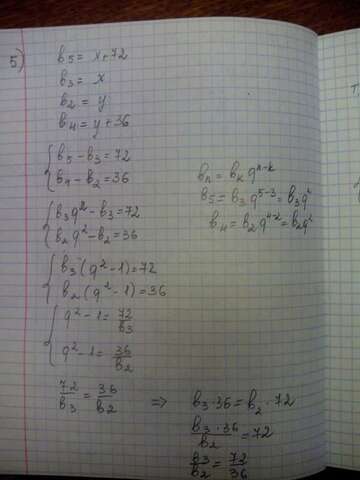 5)
b₅ = x+72
b₃ = x
b₂ = y
b₄ = y+36
{ b₅ - b₃ = 72
b₄ - b₂ = 36
bₙ = bₖ qⁿ⁻ᵏ
b₅ = b₃ q⁵⁻³ = b₃q²
b₄ = b₂ q⁴⁻² = b₂q²
{ b₃q² - b₃ = 72
b₂q² - b₂ = 36
{ b₃ (q² - 1) = 72
b₂ (q² - 1) = 36
{ q² - 1 = 72/b₃
q² - 1 = 36/b₂
72/b₃ = 36/b₂ => b₃ · 36 = b₂ · 72
b₃ · 36/b₂ = 72
b₃/b₂ = 72/36